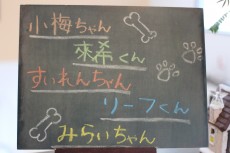 小梅ちゃん
來希くん
すいれんちゃん
リーフくん
みらいちゃん